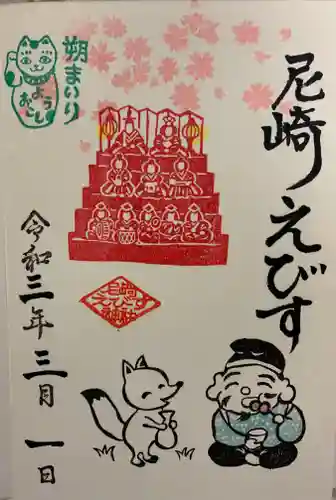 尼崎えびす
朔まいり
ようおこし
尼崎えびす神社
令和三年三月一日